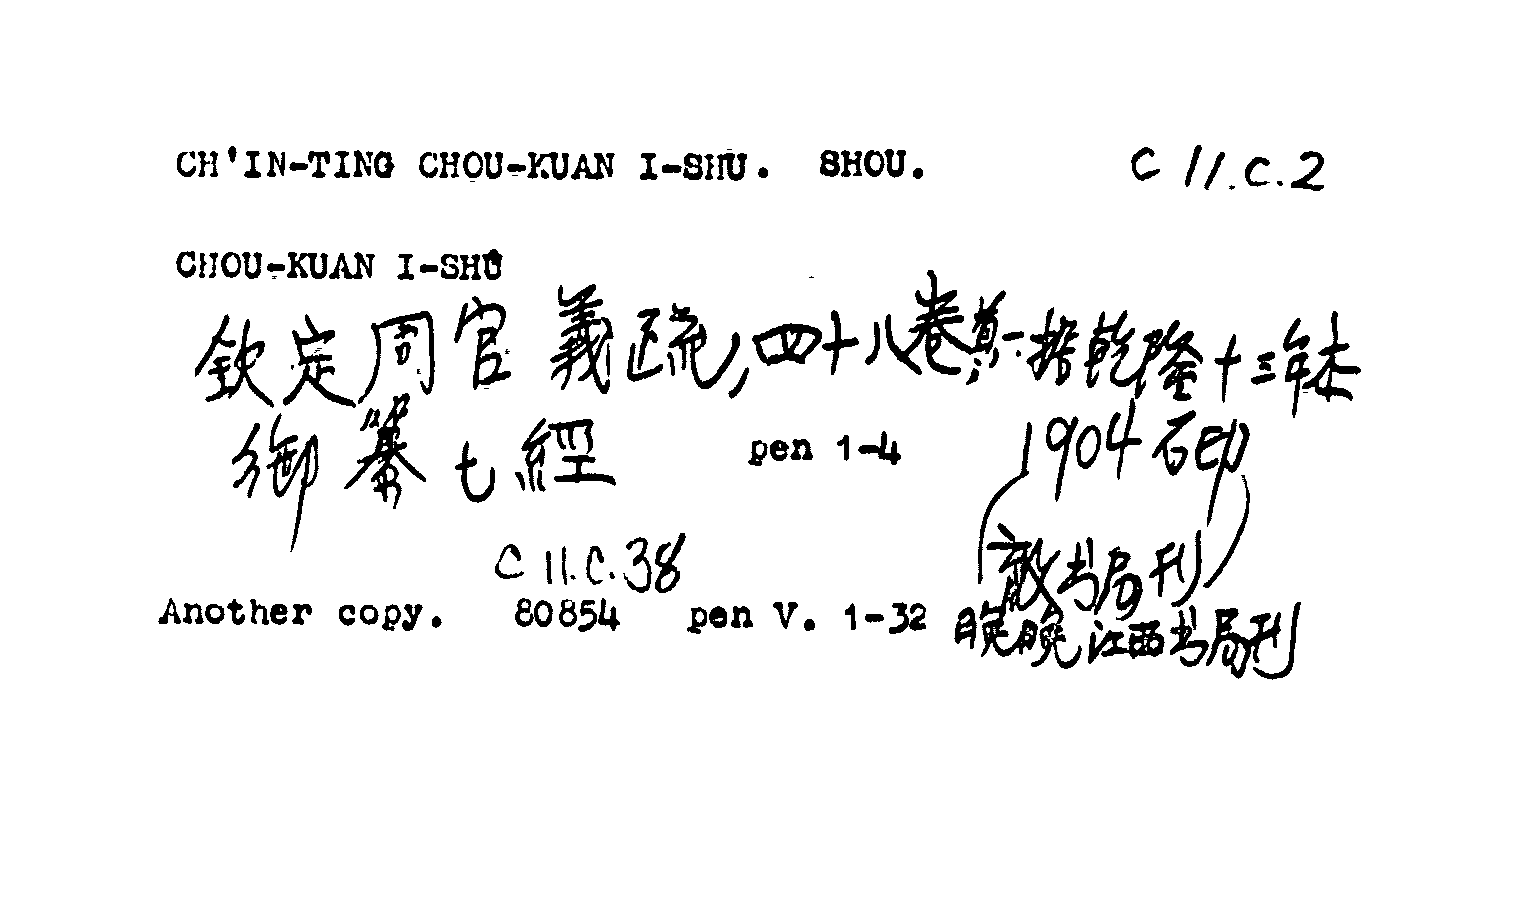 CH'IN-TING CHOU-KUAN I-SHU. SHOU. C 11.C.2
CHOU-KUAN I-SHU
欽定周官義疏,四十八卷首一 据乾隆十三年本
御纂七經 pen 1-4 1904石印
书局刊)
C 11.C.38
Another copy. 80854 pen V. 1-32 江西书局刊